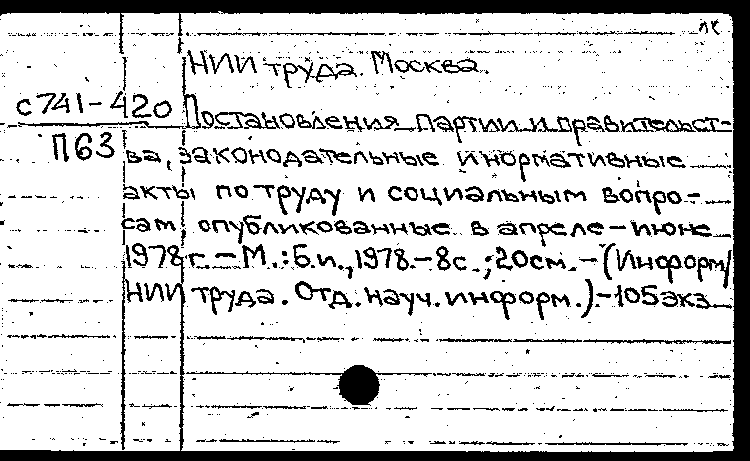 пк
НИИ труда. Москва.
с741-420
Постановления партии и правительст-
П63
ва, законодательные и нормативные
акты по труду и социальным вопро-
сам, опубликованные в апреле-июне
1978г. - М.: Б.и., 1978.-8с.; 20см. - (Информ/
НИИ труда. Отд. науч. информ.).-105экз.